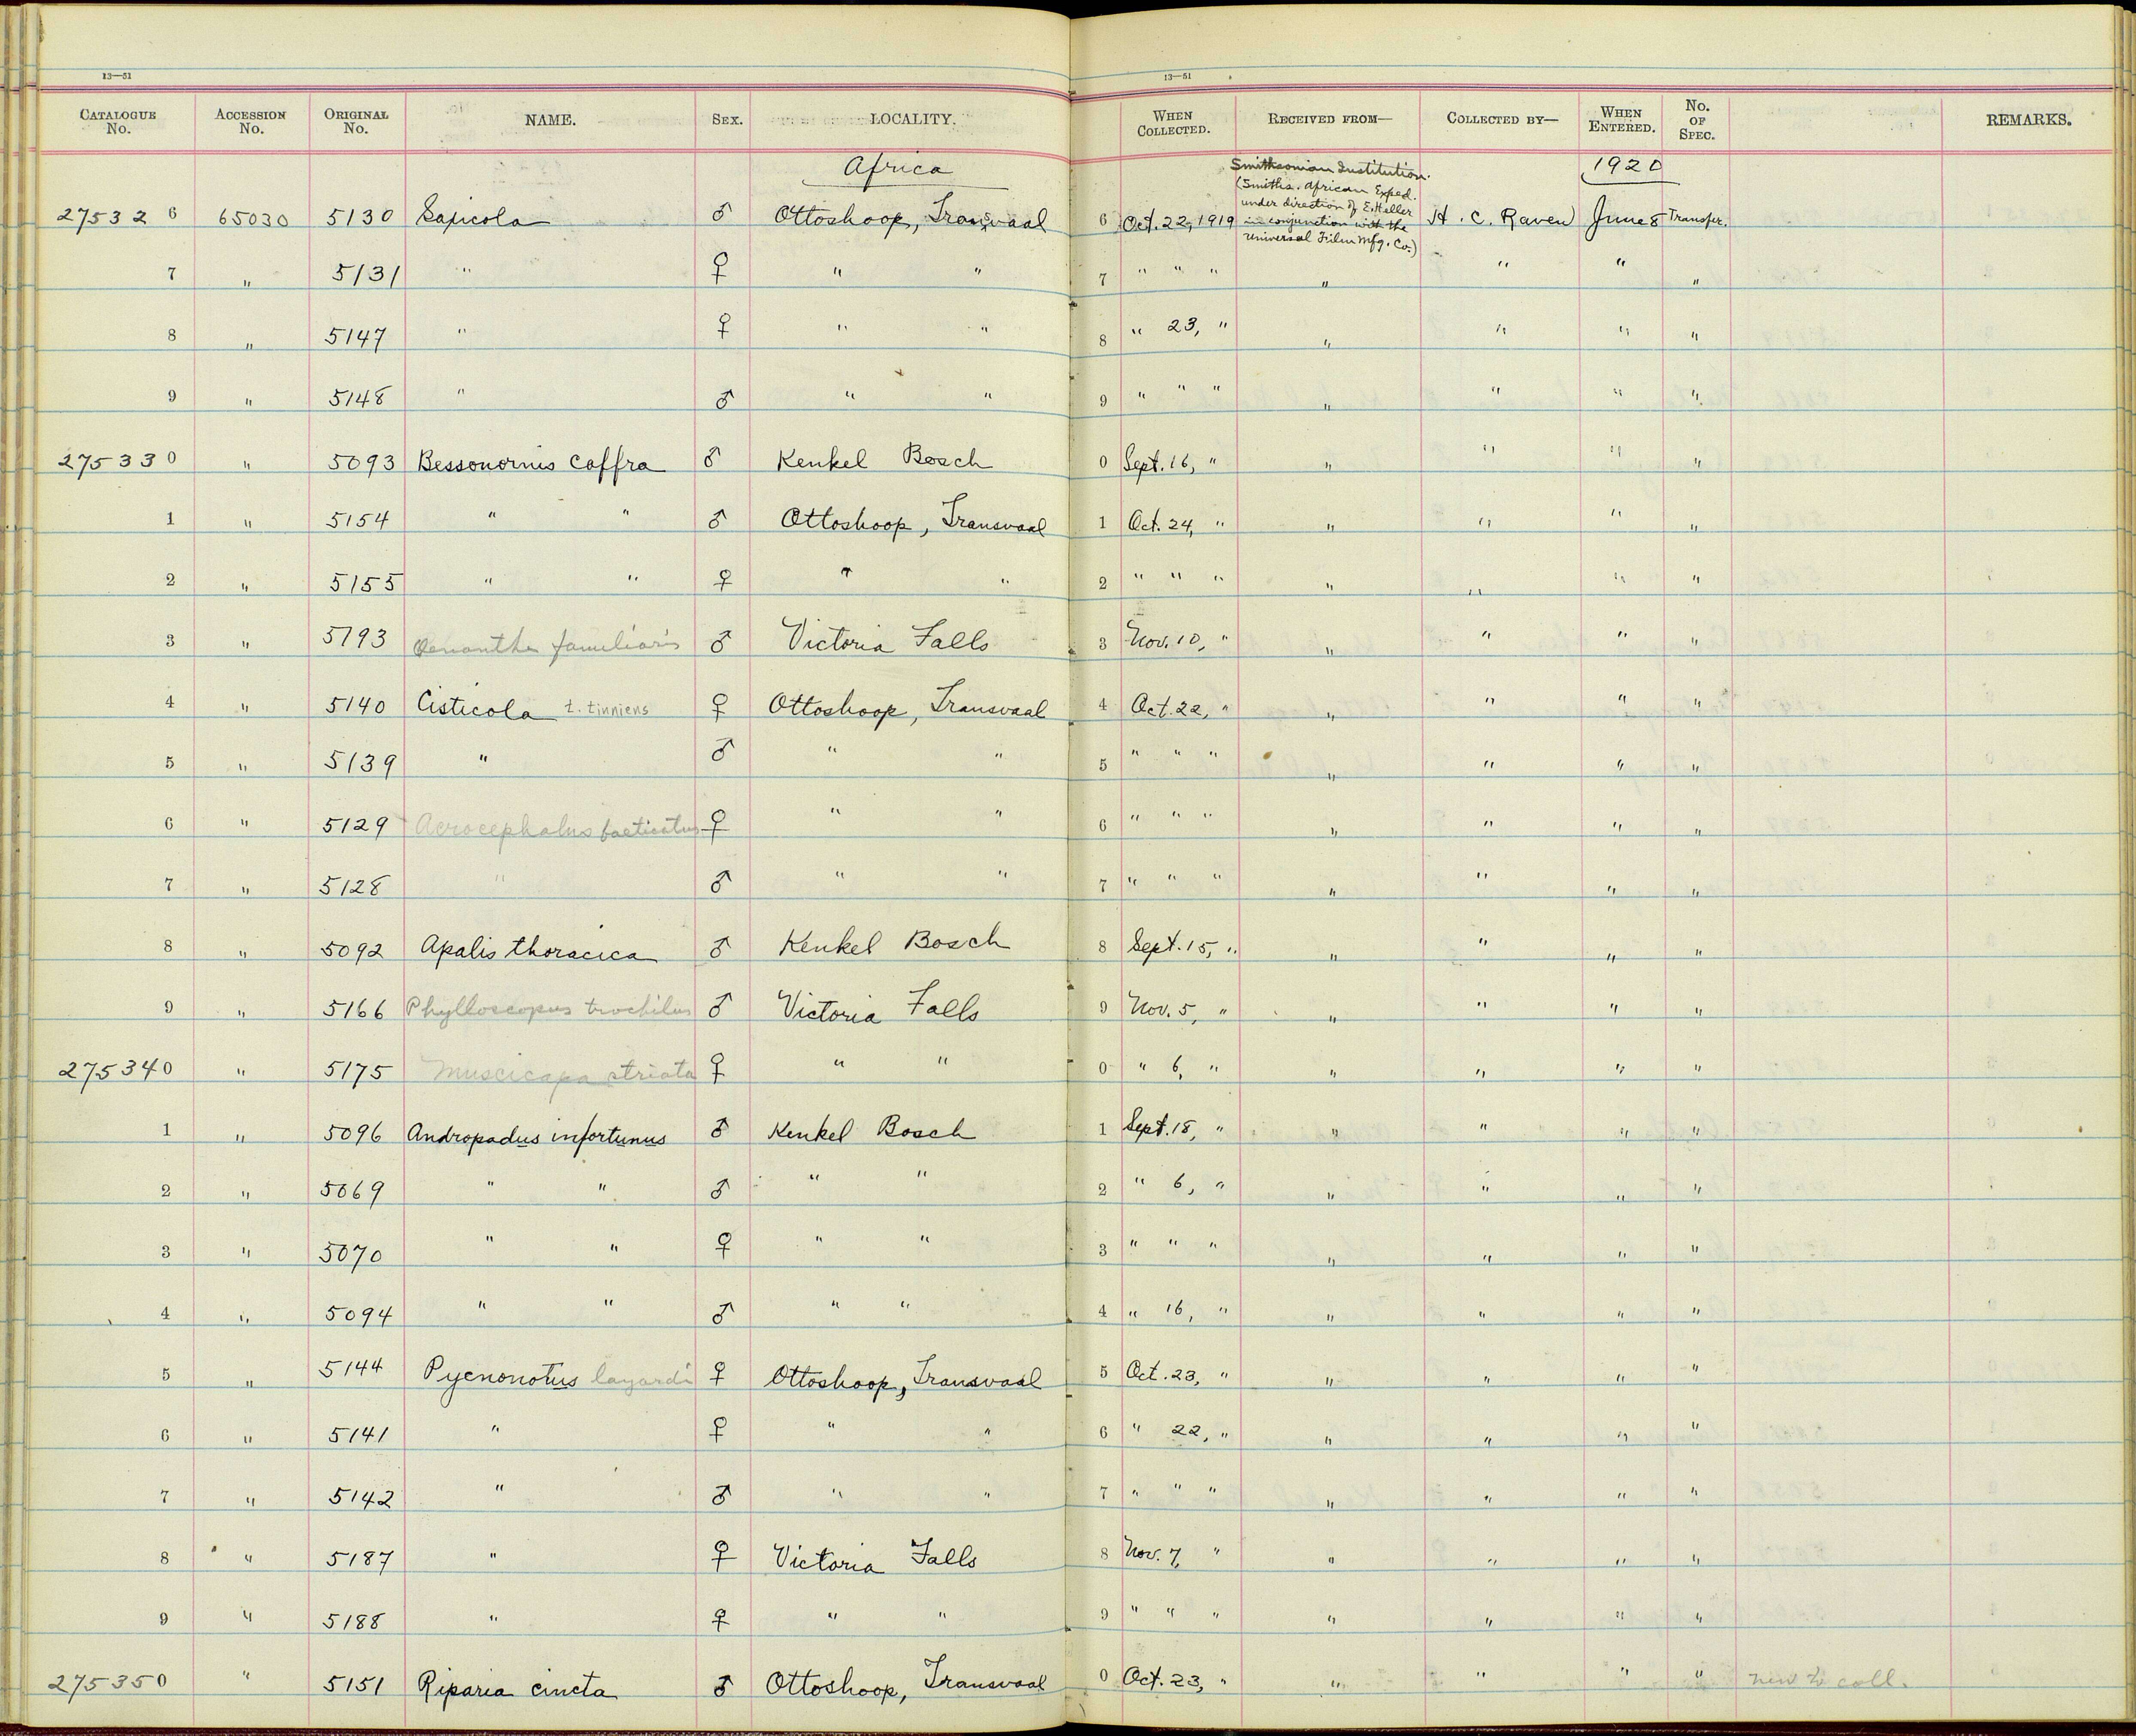 13—51 13—51
CATALOGUE No. ACCESSION No. ORIGINAL No. NAME. SEX. LOCALITY. WHEN COLLECTED. RECEIVED FROM— COLLECTED BY— WHEN ENTERED. No. OF SPEC. REMARKS.
Africa 1920
Smithsonian Institution.
(Smiths. African Exped.
under direction of E. Heller
in conjunction with the
Universal Film Mfg. Co.)
275326 65030 5130 Saxicola ♂ Ottoshoop, Transvaal 6 Oct. 22, 1919 H. C. Raven June 8 Transfer.
7 " 5131 " ♀ " " 7 " " " " " " "
8 " 5147 " ♀ " " 8 " 23, " " " " "
9 " 5148 " ♂ " " 9 " " " " " " "
275330 " 5093 Bessonornis caffra ♂ Kenkel Bosch 0 Sept. 16, " " " " "
1 " 5154 " " ♂ Ottoshoop, Transvaal 1 Oct. 24, " " " " "
2 " 5155 " " ♀ " " 2 " " " " " " "
3 " 5193 Oenanthe familiaris ♂ Victoria Falls 3 Nov. 10, " " " " "
4 " 5140 Cisticola t. tinniens ♀ Ottoshoop, Transvaal 4 Oct. 22, " " " " "
5 " 5139 " ♂ " " 5 " " " " " " "
6 " 5129 Acrocephalus baeticatus ♀ " " 6 " " " " " " "
7 " 5128 " ♂ " " 7 " " " " " " "
8 " 5092 Apalis thoracica ♂ Kenkel Bosch 8 Sept. 15, " " " " "
9 " 5166 Phylloscopus trochilus ♂ Victoria Falls 9 Nov. 5, " " " " "
275340 " 5175 Muscicapa striata ♀ " " 0 " 6, " " " " "
1 " 5096 Andropadus infortunus ♂ Kenkel Bosch 1 Sept. 18, " " " " "
2 " 5069 " " ♂ " " 2 " 6, " " " " "
3 " 5070 " " ♀ " " 3 " " " " " " "
4 " 5094 " " ♂ " " 4 " 16, " " " " "
5 " 5144 Pycnonotus layardi ♀ Ottoshoop, Transvaal 5 Oct. 23, " " " " "
6 " 5141 " ♀ " " 6 " 22, " " " " "
7 " 5142 " ♂ " " 7 " " " " " " "
8 " 5187 " ♀ Victoria Falls 8 Nov. 7, " " " " "
9 " 5188 " ♀ " " 9 " " " " " " "
275350 " 5151 Riparia cincta ♂ Ottoshoop, Transvaal 0 Oct. 23, " " " " " new to coll.